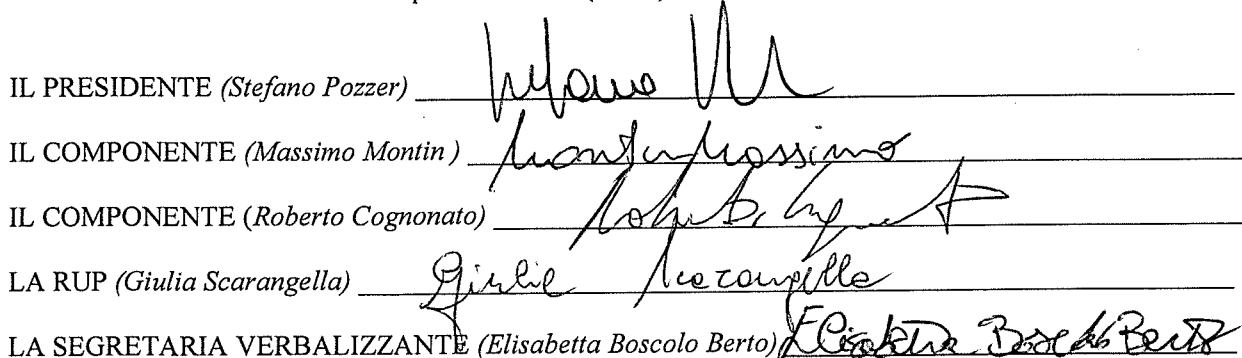 IL PRESIDENTE (Stefano Pozzer)
IL COMPONENTE (Massimo Montin ) Montin Massimo
IL COMPONENTE (Roberto Cognonato)
LA RUP (Giulia Scarangella) Giulia Scarangella
LA SEGRETARIA VERBALIZZANTE (Elisabetta Boscolo Berto) Elisabetta Boscolo Berto